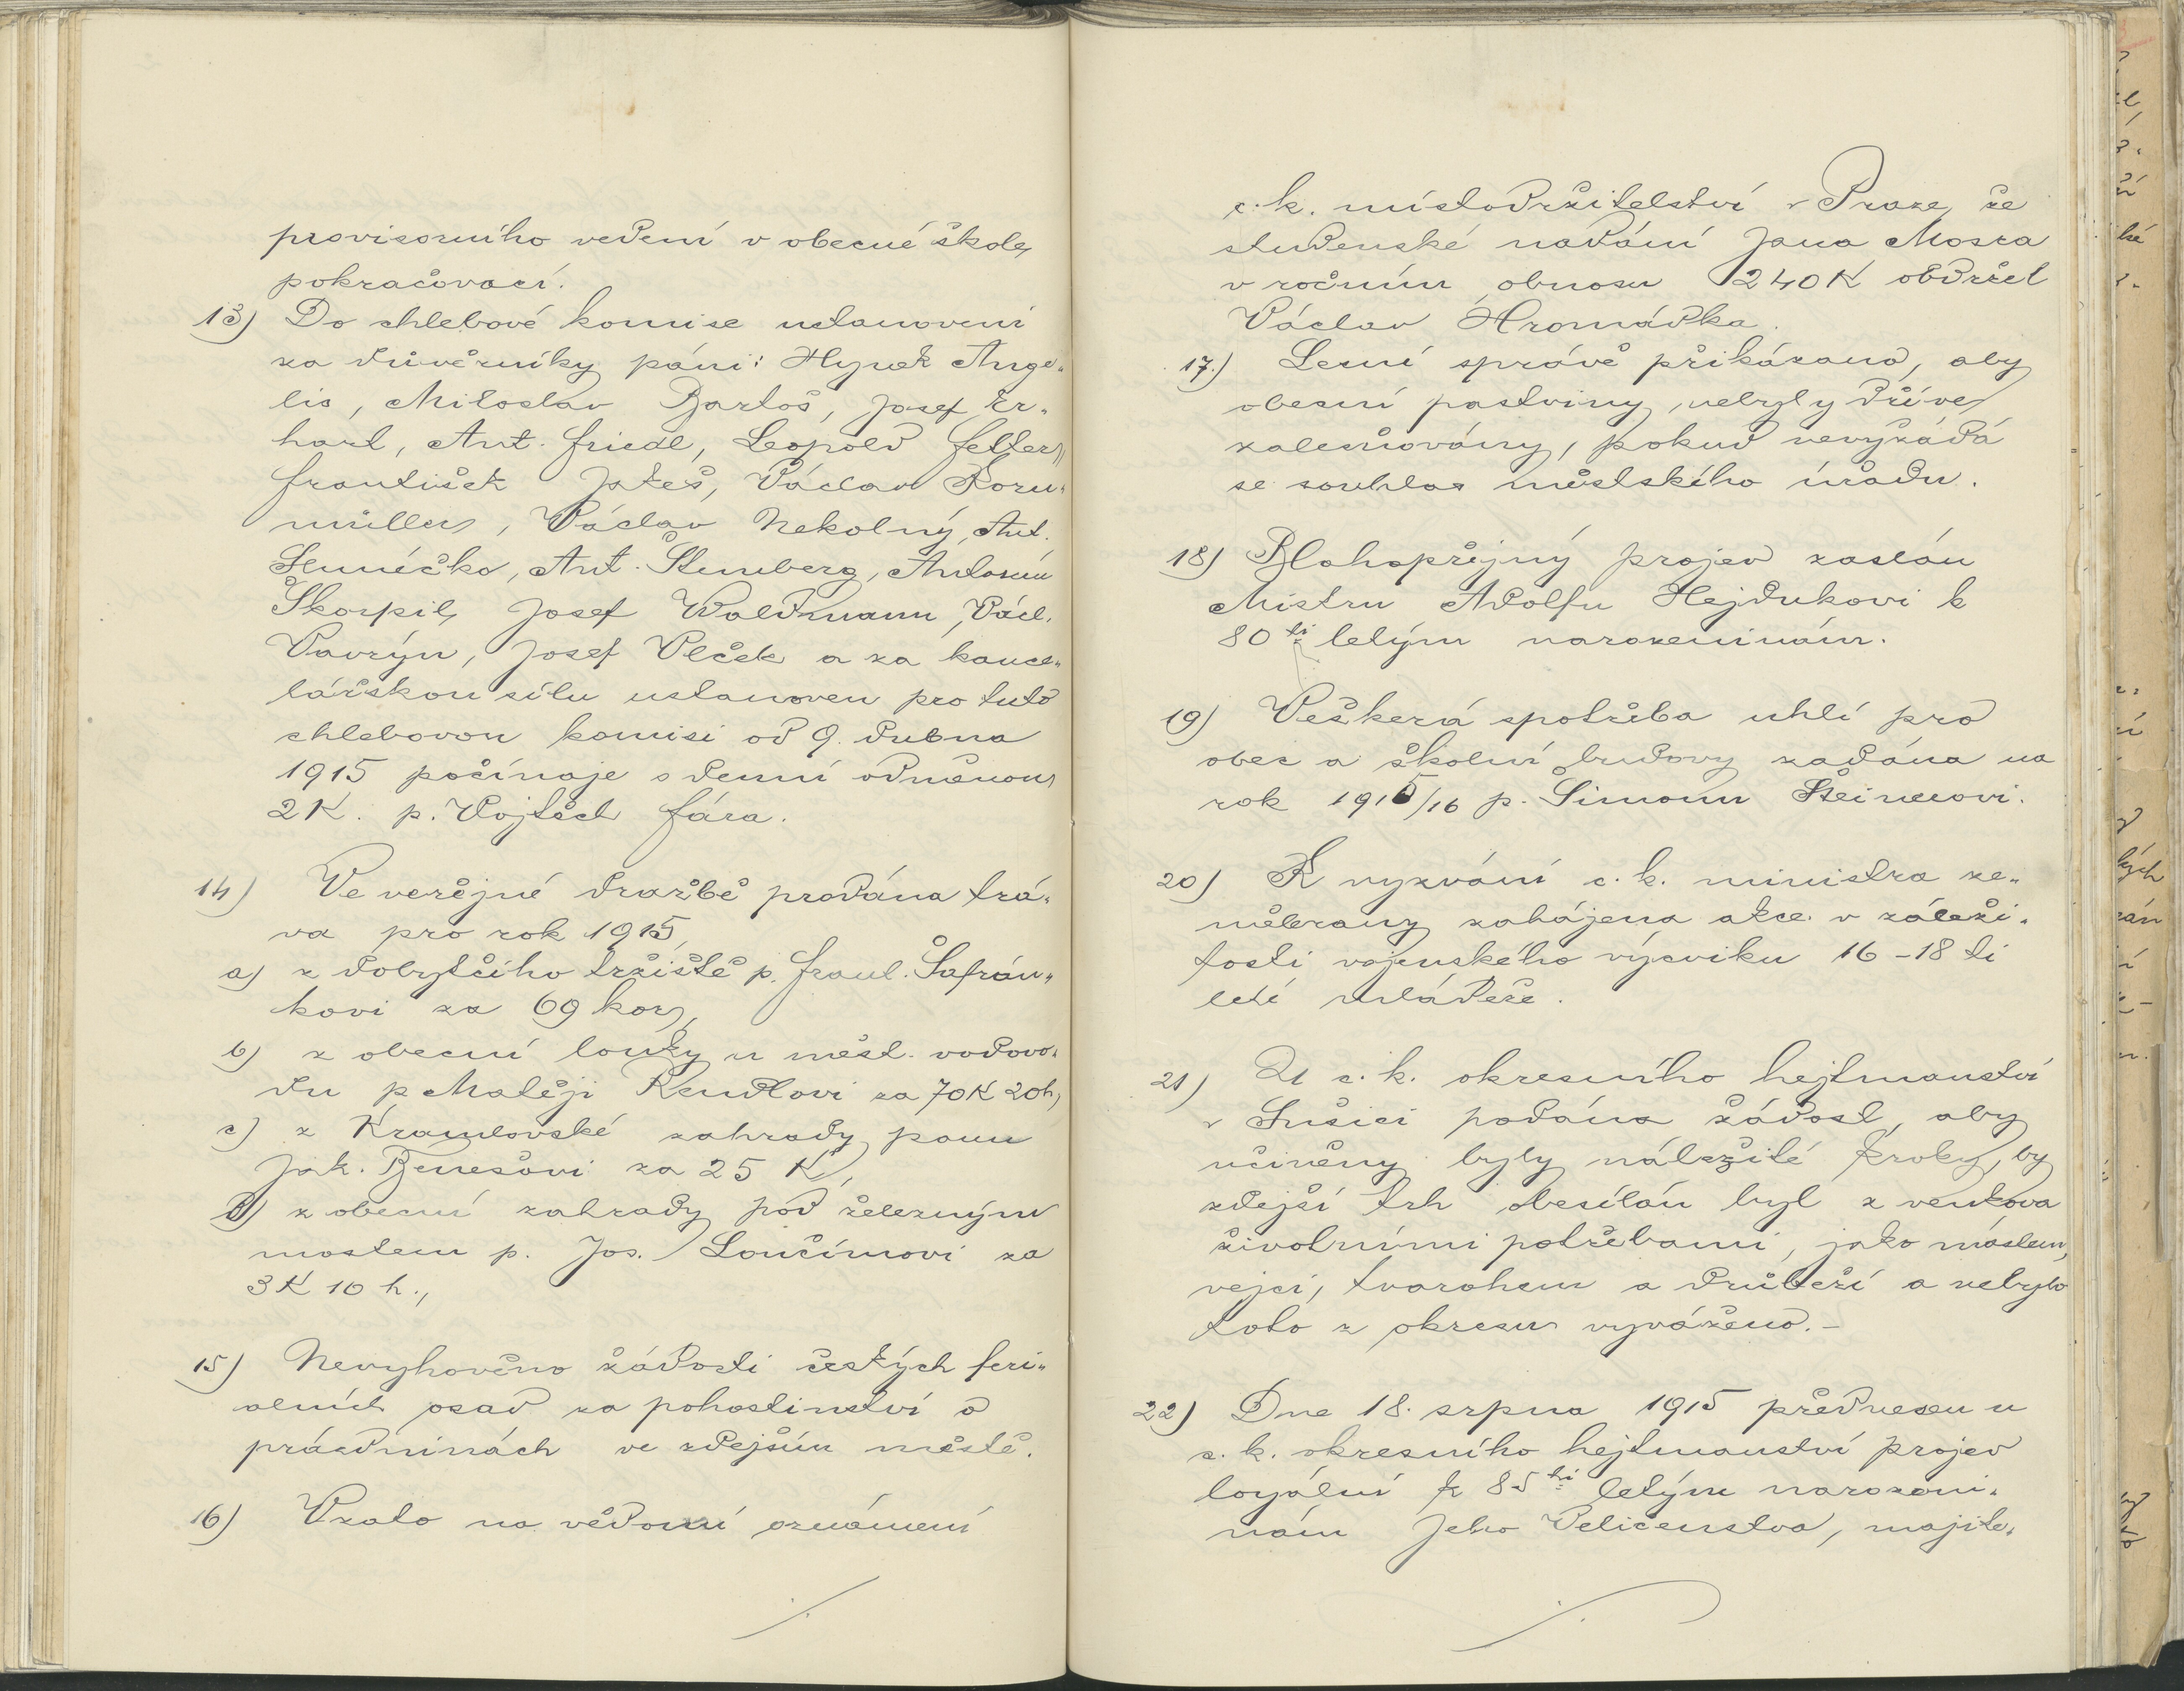 provisorního vedení v obecné škole
pokračovací.
13) Do chlebové komise ustanoveni
za důvěrníky páni: Hynek Ange„
lis, Miloslav Bartoš, Josef Er„
hart, Ant. Friedl, Leopold Fetter,
František Jakeš, Václav Korn„
müller, Václav Nekolný, Ant.
Slunéčko, Ant. Šternberg, Antonín
Škorpil, Josef Waldmann, Václ.
Vavrýn, Josef Vlček a za kance„
lářskou sílu ustanoven pro tuto
chlebovou komisi od 9. dubna
1915 počínaje s denní odměnou
2 K. p. Vojtěch Fára.
14) Ve veřejné dražbě prodána trá„
va pro rok 1915
a) z dobytčího tržiště p. Frant. Šafrán„
kovi za 69 kor,
b) z obecní louky u měst. vodovo„
du p Matěji Rendlovi za 70 K 20 h,
c) z Kramlovské zahrady panu
Jak. Benešovi za 25 K,
d) z obecní zahrady pod železným
mostem p. Jos. Loučímovi za
3 K 10 h.,
15) Nevyhověno žádosti českých feri„
alních osad za pohostinství o
prázdninách ve zdejším městě.
16) Vzato na vědomí oznámení
c. k. místodržitelství v Praze, že
studenské nadání Jana Mosra
v ročním obnosu 240 K obdržel
Václav Hromádka.
17.) Lesní správě přikázano, aby
obecní pastviny nebyly dříve
zalesňovány, pokud nevyžádá
se souhlas městského úřadu.
18) Blahopřejný projev zaslán
Mistru Adolfu Hejdukovi k
80 ti letým narozeninám.
19) Veškerá spotřeba uhlí pro
obec a školní budovy zadána na
rok 1915/16 p. Šimonu Steinerovi.
20) K vyzvání c. k. ministra ze„
měbrany zahájena akce v záleži„
tosti vojenského výcviku 16 - 18 ti
leté mládeže.
21) U c. k. okresního hejtmanství
v Sušici podána žádost, aby
učiněny byly náležité kroky, by
zdejší trh obesílán byl z venkova
životními potřebami, jako máslem,
vejci, tvarohem a drůbeží a nebylo
toto z okresu vyváženo. -
22) Dne 18. srpna 1915 přednesen u
c. k. okresního hejtmanství projev
loyální k 85 ti letým narozeni„
nám Jeho Veličenstva, majite„